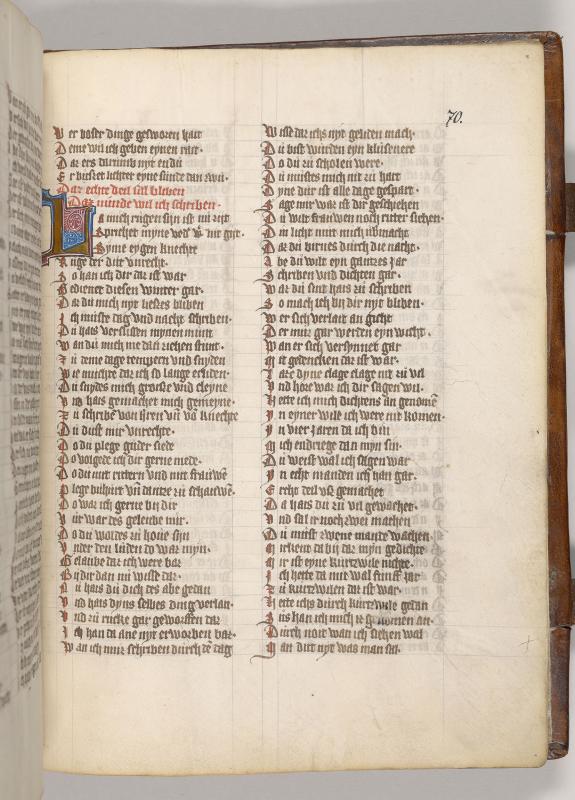 70.
V er boser dinge gesworen hait
D eme wil ich geben eynen rait
D az ers darumb nyt endu
E r busset lichter eyne sunde dan zwu
D az echte deil sal bliben
D az nunde wil ich schriben
L a mich rugen sijn ist zijt
Sprichet myne
Syne eygen knechte
R uge der dut unrecht
S o han ich dir daz ist war
G edienet diesen winter gar
D az du mich nyt lezes bliben
I ch muste dag und nacht schriben
D u hais verslissen mynen munt
W an du mich me dan zehen stunt
Z u deme dage tempern und snyden
W ie mochte daz ich so lange erliden
D u snydes mich grosse und cleyne
V nd hais gemachet mich gemeyne
Z u schribe von heren vn von knechte
D u dust mir unrechte
D o du plege guder siede
D o volgede ich dir gerne mede
D o du mit rittern und mit frauwen
P lege buhurt vn dantze zu schauwen
D o was ich gerne by dir
V ur war des geleube mir
D o du woldes zu houe sijn
V nder den luden do was myn
G elaube daz ich were bas
B y dir dan nu wisse das
N u hais du dich des abe gedan
V nd hais dyns selbes ding verlan
V nd zu rucke gar geworffen daz
I ch han da ane nyt erworben bas
W an ich muz schriben durch den dag
W isse daz ichs nyt geliden mach
D u bist wurden eyn klusenere
D o du zu scholen were
D u muwes mich nit zu hart
D yne dur ist alle dage gespart
S age mir waz ist dir geschiehen
D u wilt frauwen noch ritter siehen
D in licht muet mich ubernacht
D az du birnes durch die nacht
A be du wilt eyn gantzes jar
S chriben und dichten gar
W az du sint hais zu schriben
S o mach ich by dir nyt bliben
W er sich verlait an gicht
D er muz gar werden eyn wicht
W an er sich versynnet gar
M it gedencken daz ist war
L aze dyne clage clage nit zu vil
V nd hore waz ich dir sagen wil
H ette ich mich dichtens an genomen
I n eyner wile ich were nit komen
I n vier jaren da ich bin
M ich endriege dan myn sin
D u weist wal ich sagen war
I n echt manden ich han gar
E echt deil vz gemachet
D a hais du zu vil gewachet
V nd sal ir noch zwei machen
D u must zwene mande wachen
M irkent da by daz myn gedichte
M ir ist eyne kurtzwile nichte
I ch hette da mit wal funff jar
Z u kurtzwilen daz ist war
H ette ichs durch kurtzwile gedan
I us han ich mich is genomen an
D urch noit wan ich siehen wal
M an dut nyt was man sal